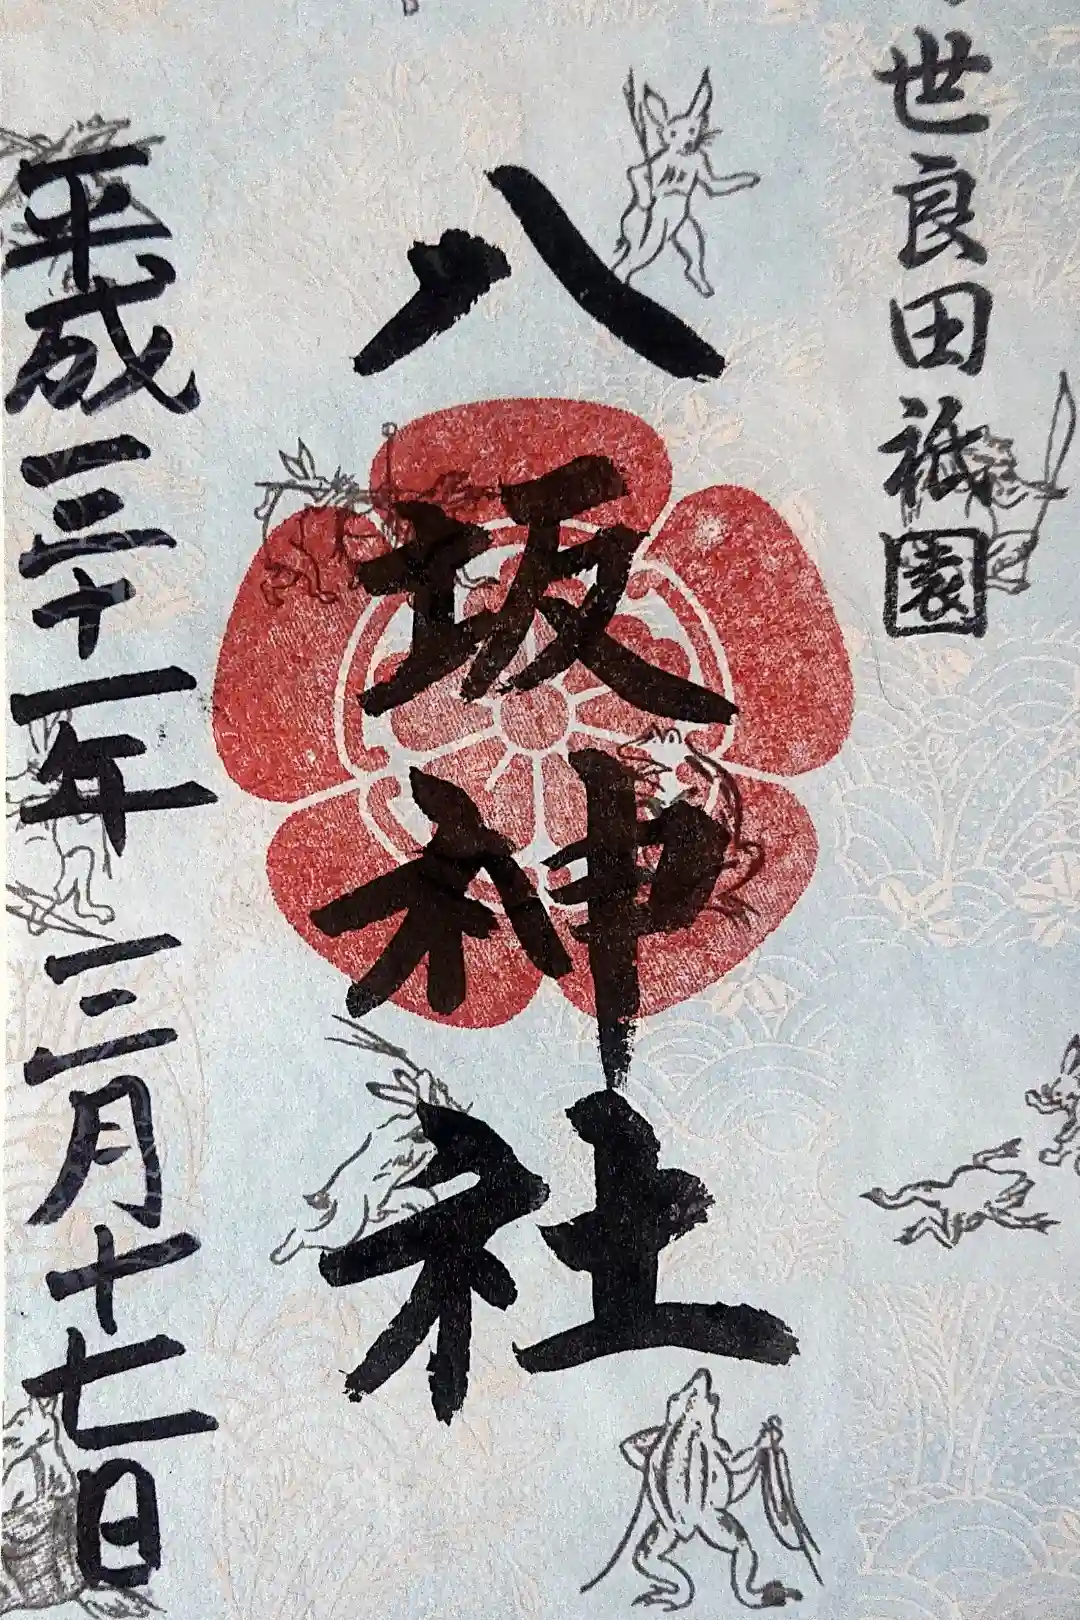 世良田祗園
八坂神社
平成三十一年三月十七日